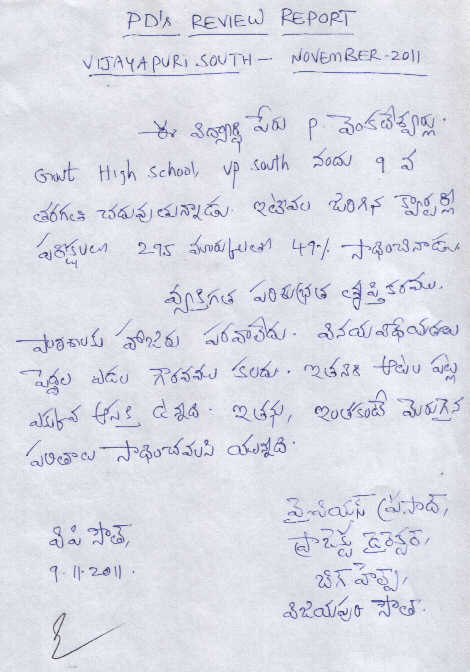 PD's REVIEW REPORT
VIJAYAPURI SOUTH - NOVEMBER-2011
ఈ విద్యార్థి పేరు P. వెంకటేశ్వర్లు.
Govt High School, VP South నందు 9 వ
తరగతి చదువుతున్నాడు. ఇటీవల జరిగిన క్వార్టర్లీ
పరీక్షలలో 295 మార్కులతో 49% సాధించినాడు.
వ్యక్తిగత పరిశుభ్రత తృప్తికరము.
పాఠశాలకు హాజరు పరవాలేదు. వినయవిధేయతలు
పెద్దల ఎడల గౌరవము కలదు. ఇతనికి ఆటల పట్ల
ఎక్కువ ఆసక్తి ఉన్నది. ఇతను, ఇంతకంటే మెరుగైన
ఫలితాలు సాధించవలసి యున్నది.
వి పి సౌత్,
9.11.2011.
వైజియస్ ప్రసాద్,
ప్రాజెక్టు డైరెక్టర్,
బిగ్ హెల్ప్,
విజయపురి సౌత్.